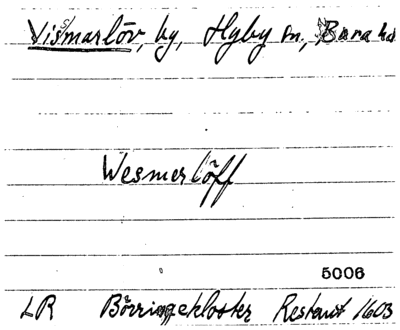 Vissmarlöv, by, Hyby sn, Bara hd
Wesmerlöff
5006
LR Börringekloster Restant 1603